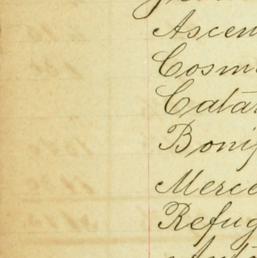 Ascen
Cosm
Catar
Bonif
Merce
Refug